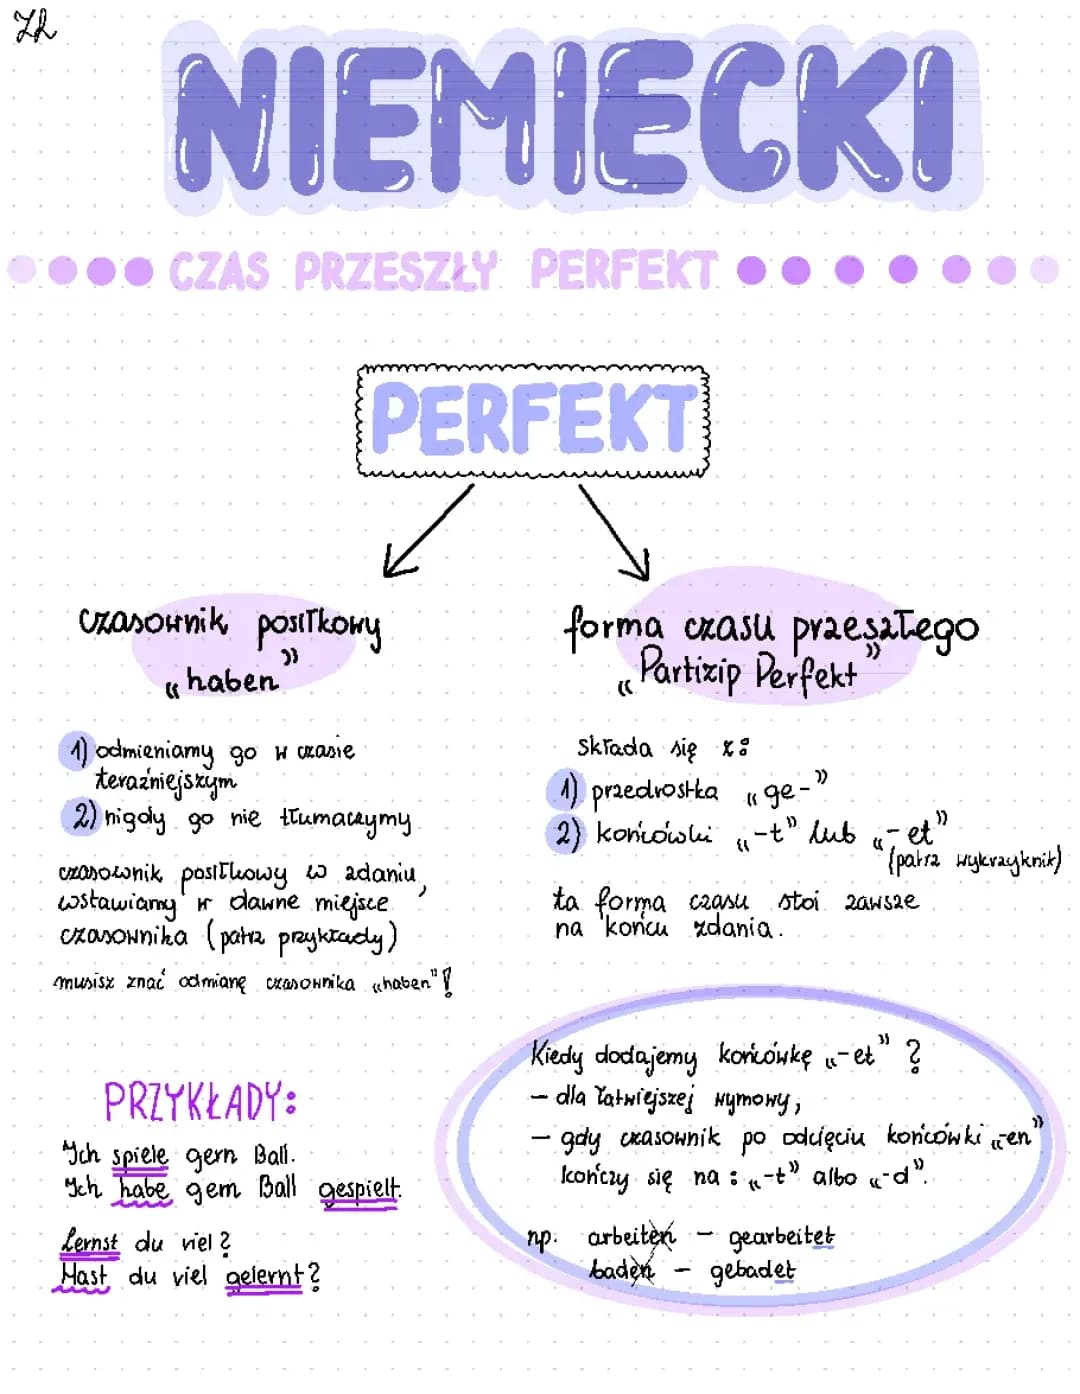 NIEMIECKI
CZAS PRZESZŁY PERFEKT
PERFEKT
czasownik posiłkowy
„haben”
1) odmieniamy go w czasie
teraźniejszym
2) nigdy go nie tłumaczymy
czasownik posiłkowy w zdaniu,
wstawiamy w dawne miejsce
czasownika (patrz przykłady)
musisz znać odmianę czasownika „haben”!
forma czasu przeszłego
„Partizip Perfekt”
składa się z:
1) przedrostka „ge-”
2) końcówki „-t” lub „-et”
(patrz wykrzyknik)
ta forma czasu stoi zawsze
na końcu zdania.
PRZYKŁADY:
Ich spiele gern Ball.
Ich habe gern Ball gespielt.
Lernst du viel?
Hast du viel gelernt?
Kiedy dodajemy końcówkę „-et”?
- dla łatwiejszej wymowy,
- gdy czasownik po odcięciu końcówki „-en”
kończy się na: „-t” albo „-d”.
np. arbeiten - gearbeitet
baden - gebadet